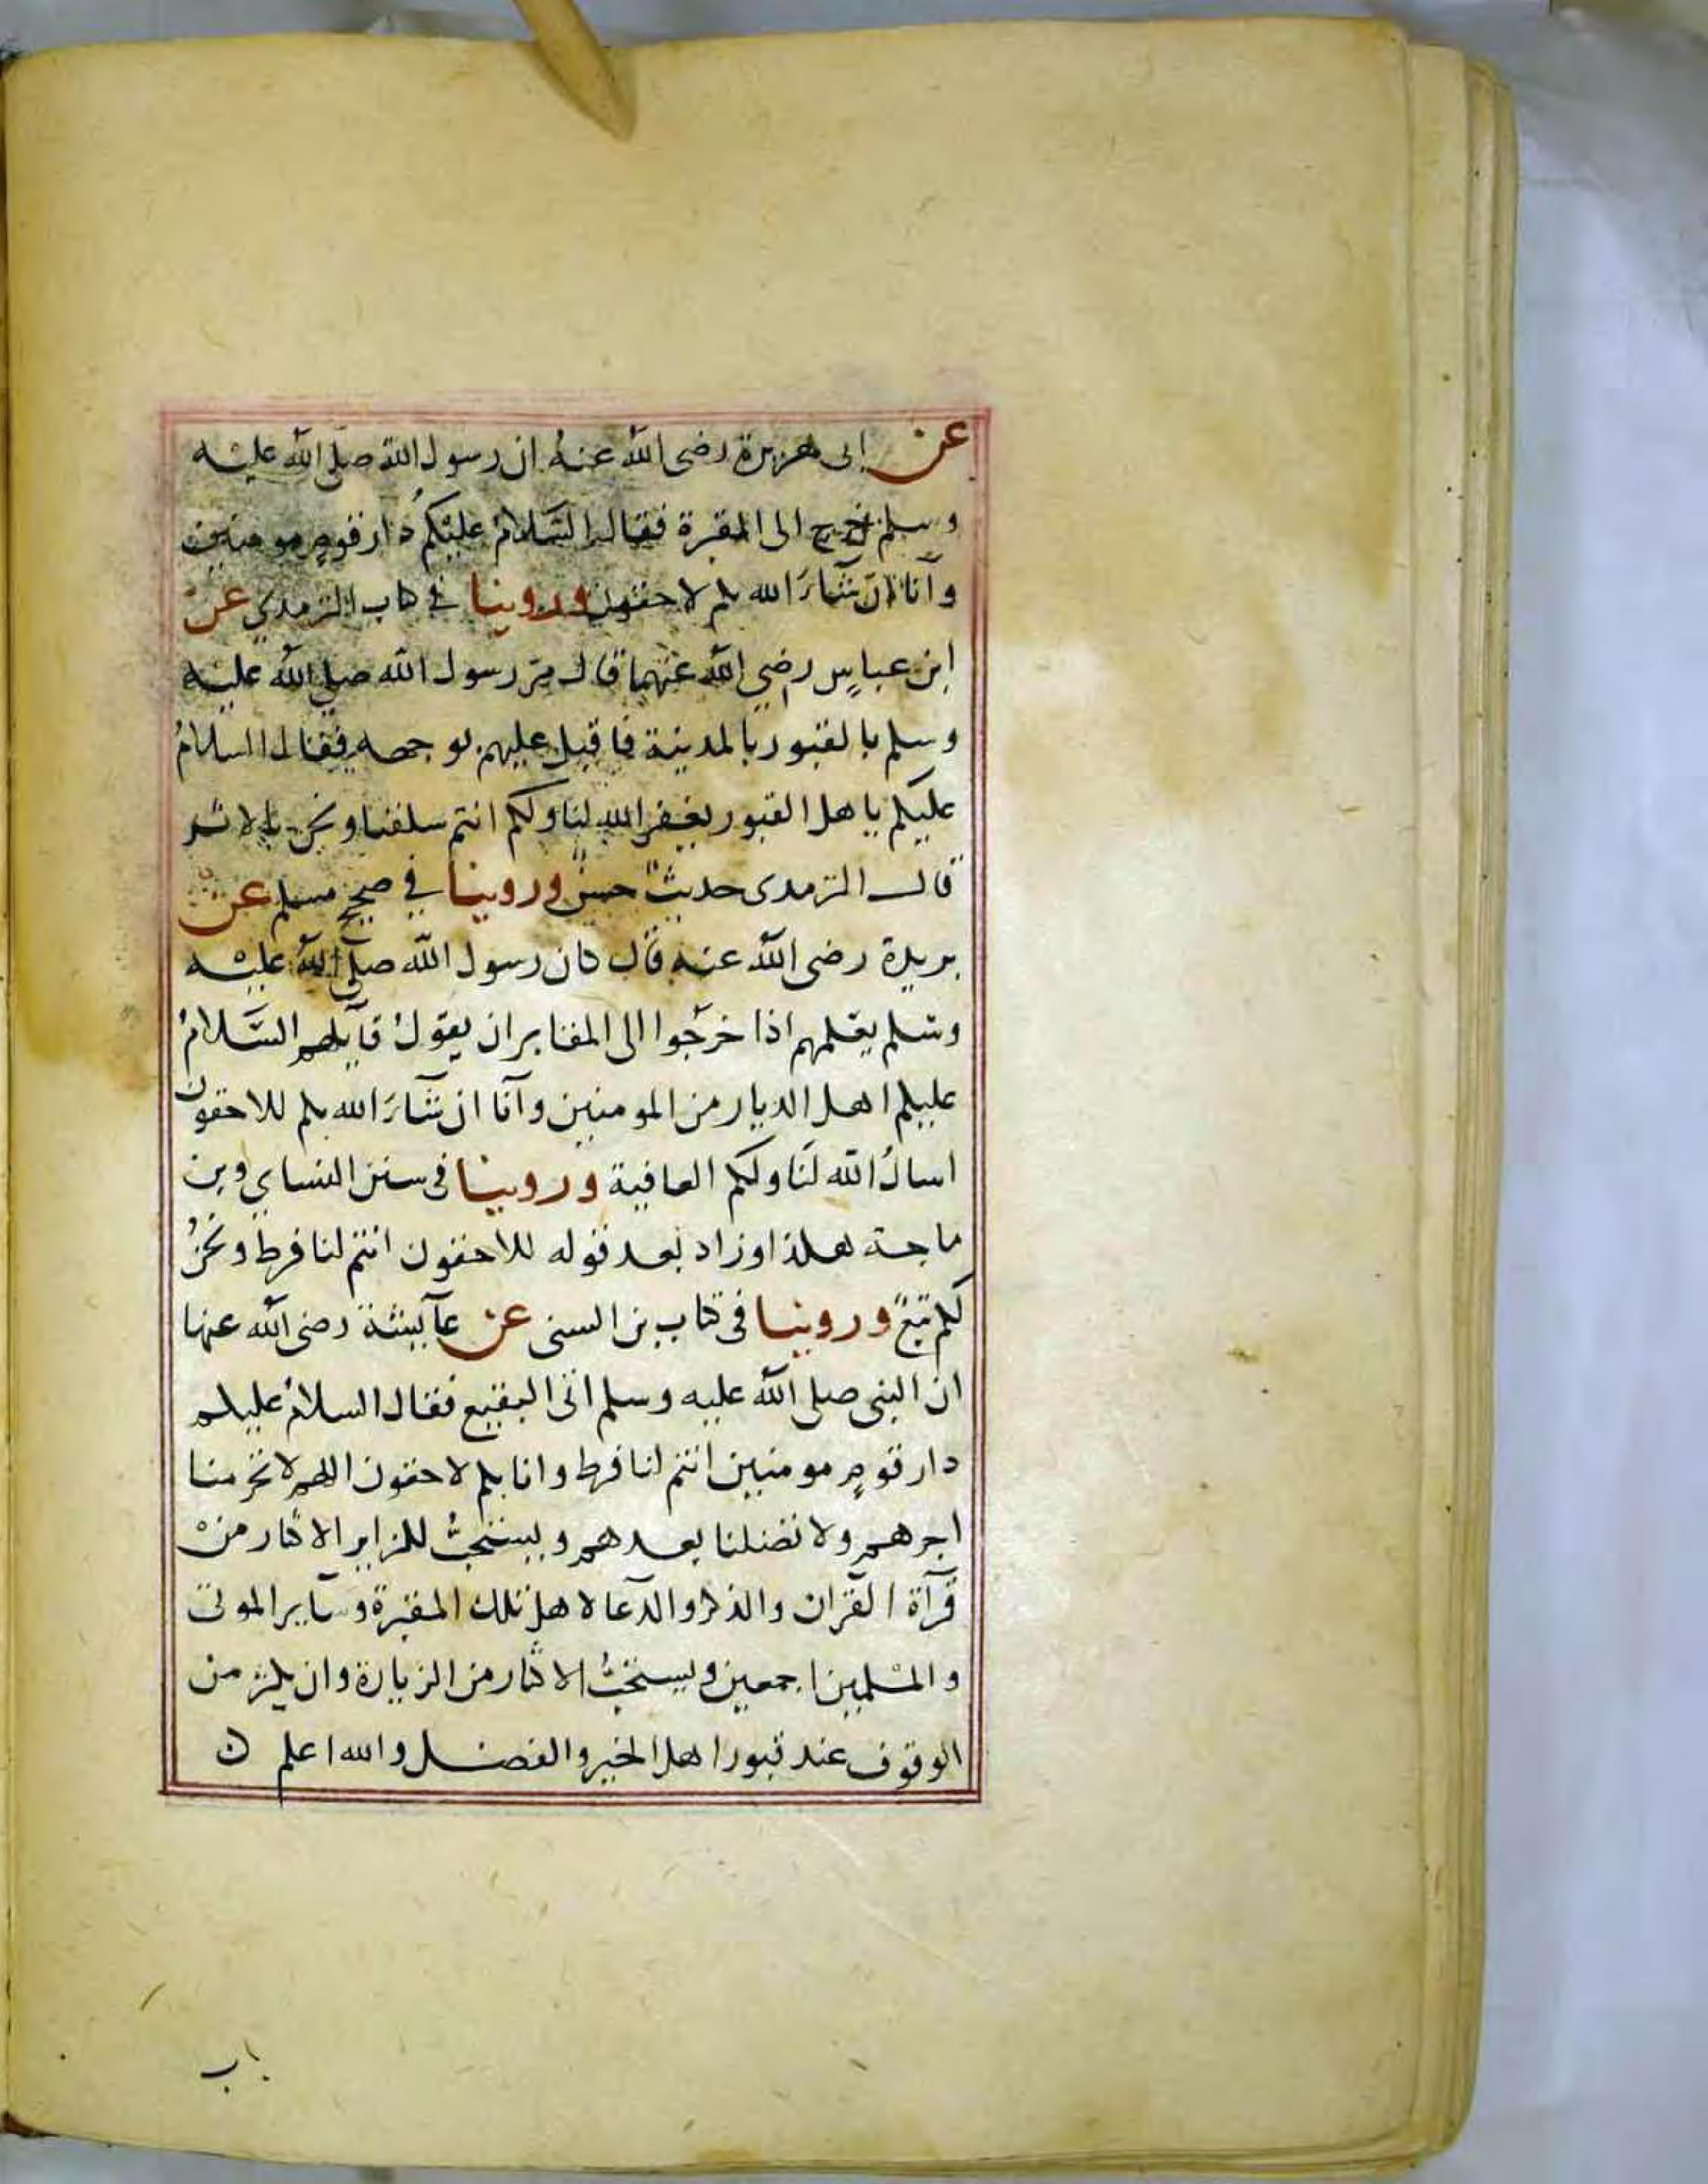 عن ابى هريرة رضى الله عنهُ ان رسول الله صلّى الله عليْه
وسلم خرج الى المقبرة فقال السَّلامُ عليْكمُ دَار قومٍ مومنين
وآنا انْ شآءَ الله بكم لاحقون وروينا في كتاب الترمدي عنْ
ابن عباسٍ رضي الله عنْهما قال مرّ رسول الله صلى الله عليْه
وسلم بالقبور بالمدينة فاقبل عليهم بوجهه فقال السلامُ
عليكم ياهل القبور يغفر الله لنا ولكم انتم سلفنا ونحن بالاثر
قال الترمدى حديثٌ حسنٌ وروينا في صحيح مسلم عنْ
بريدة رضى الله عنه قال كان رسول الله صلّى الله عليْه
وسّلم يعّلمهم اذا خرَجوا الى المقابر ان يقولُ قآيلهم السَّلامُ
عليكم اهل الديار من المومنين وآنا ان شآءَ الله بكم للاحقون
اسالُ الله لنَا ولكم العافية وروينا فى سنن النساي وبن
ماجة هكذا وزاد بعد قوله للاحقون انتم لنا فرط ونحنُ
لكم تبعٌ وروينا فى كتاب بن السنى عن عآيشة رضى الله عنها
ان النبى صلى الله عليه وسلم اتى البقيع فقال السلامُ عليكم
دار قومٍ مومنين انتم لنا فرط وانا بكم لاحقون اللهم لا تحرمنا
اجرهم ولا تضلنا بعدهم ويستحبُّ للزاير الاكثار منْ
قرآة القران والذكر والدعا لاهل تلك المقبرة وسآير الموتى
والمسْلمين اجمعين ويستحبُّ الاكثار من الزيارة وان يكثر من
الوقوف عند قبور اهل الخير والفضل والله اعلم ن
باب